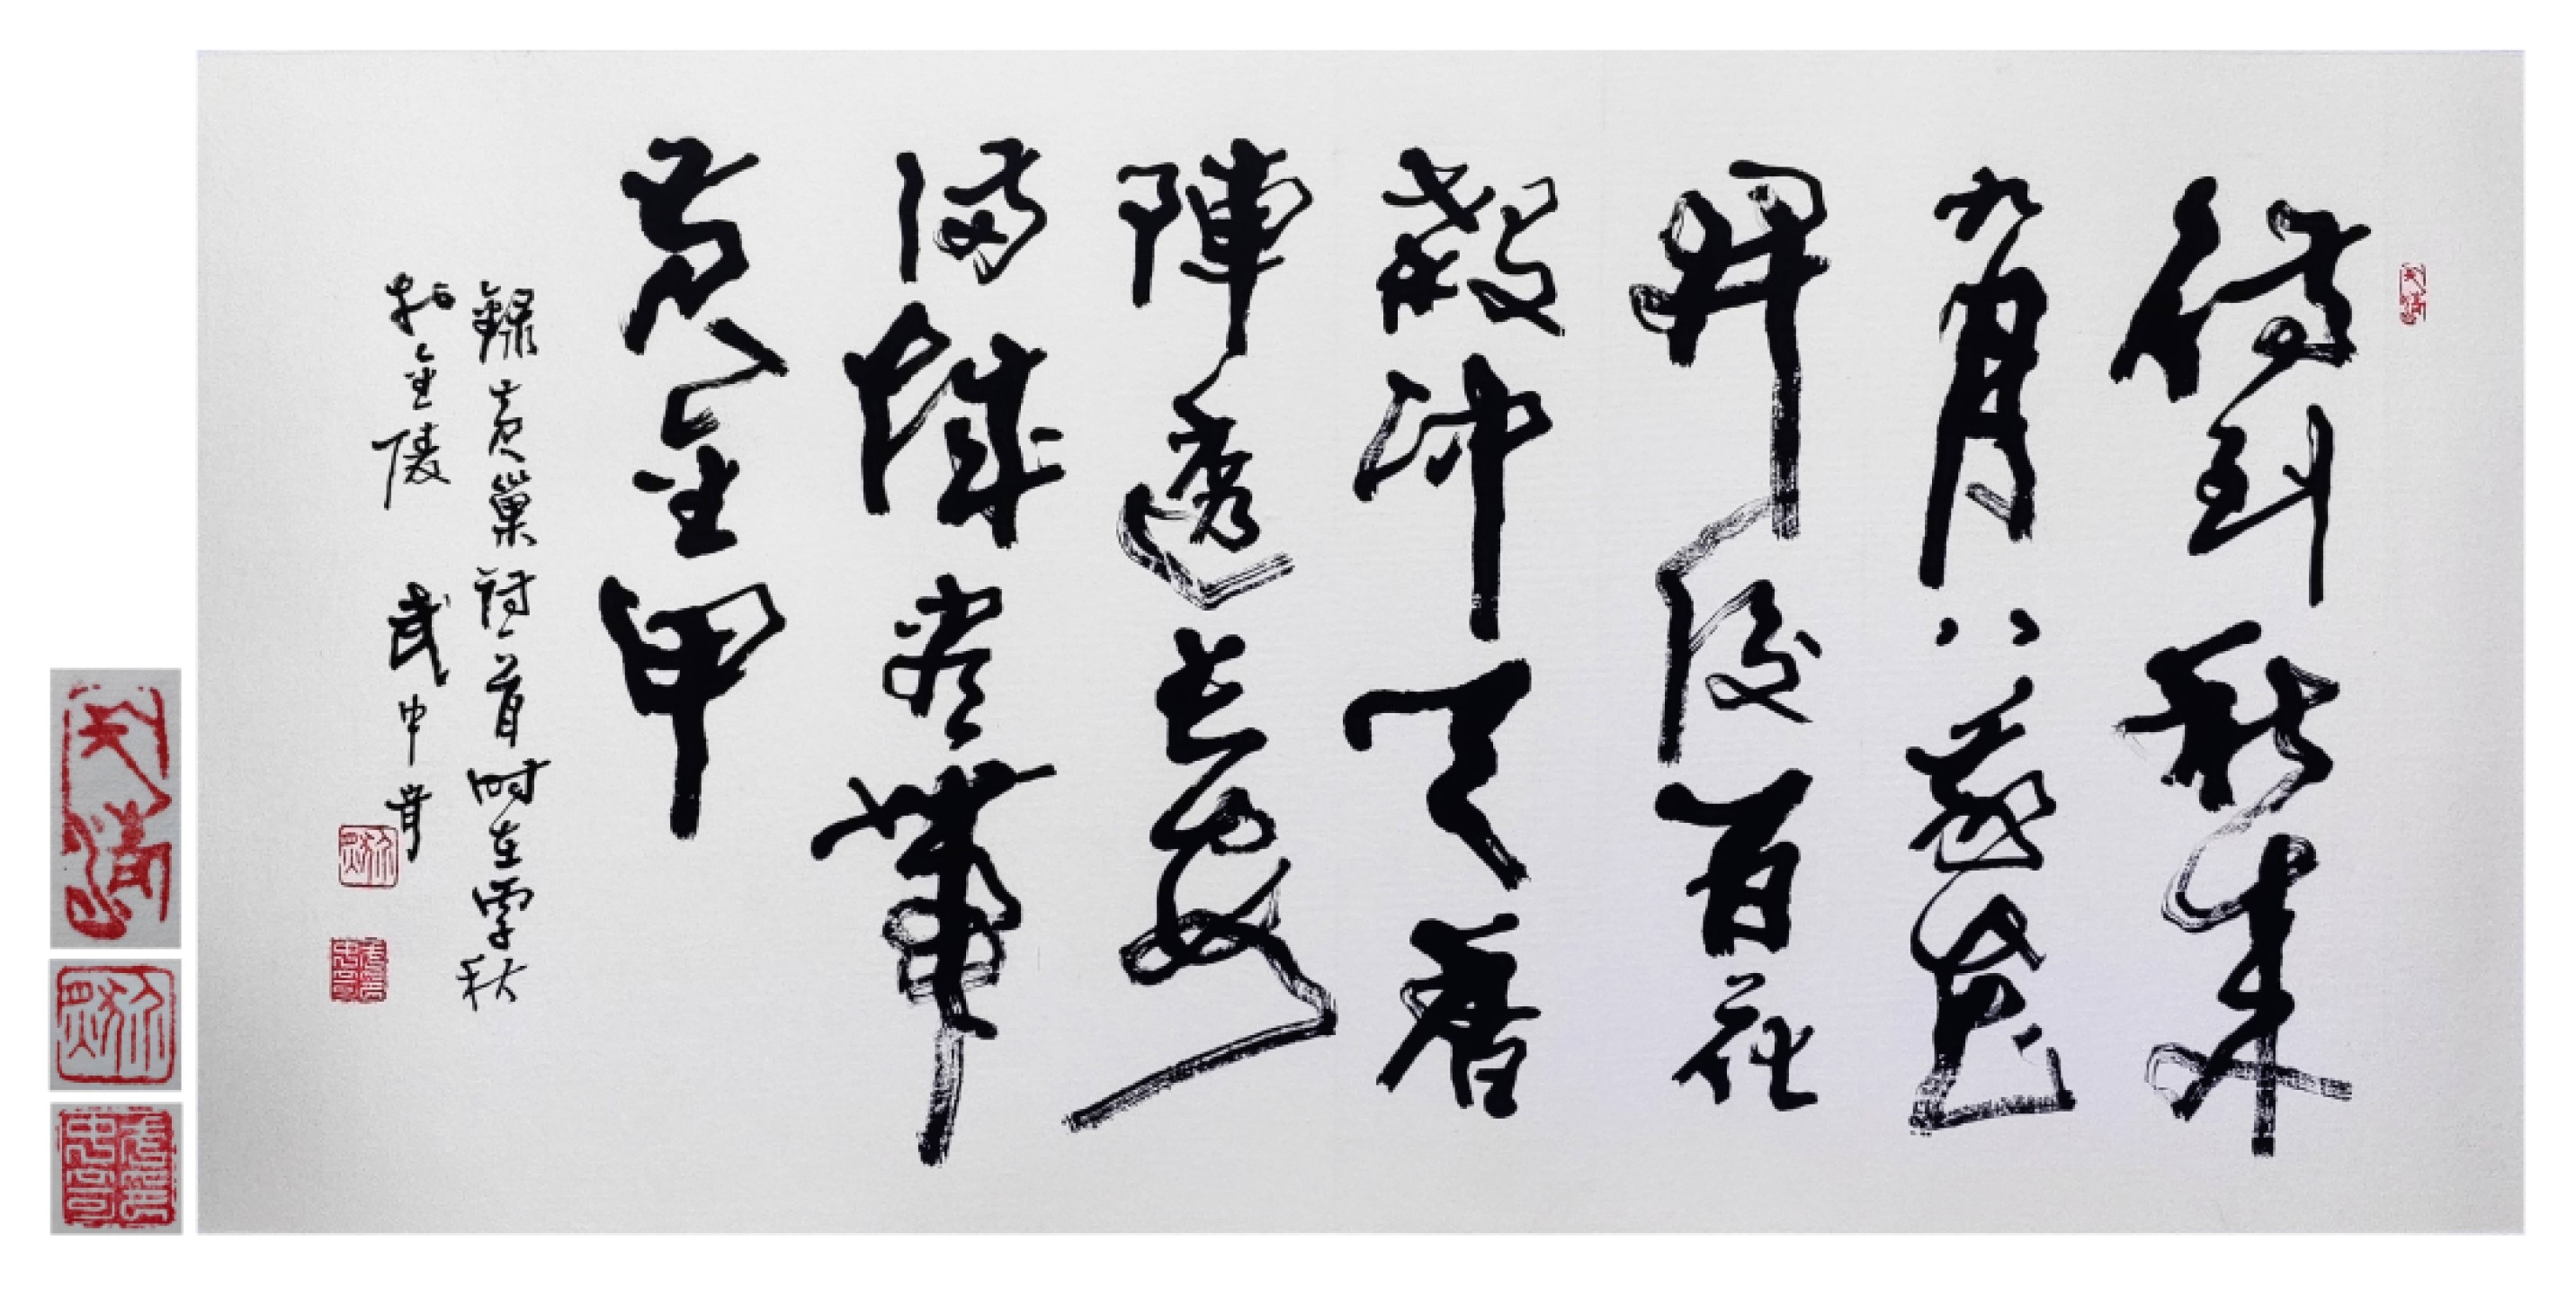 待到秋来
九月八我花
開後百花
殺冲天香
陣透長安
滿城盡帶
黃金甲
錄黃巢詩一首時在秋
於金陵 武中奇